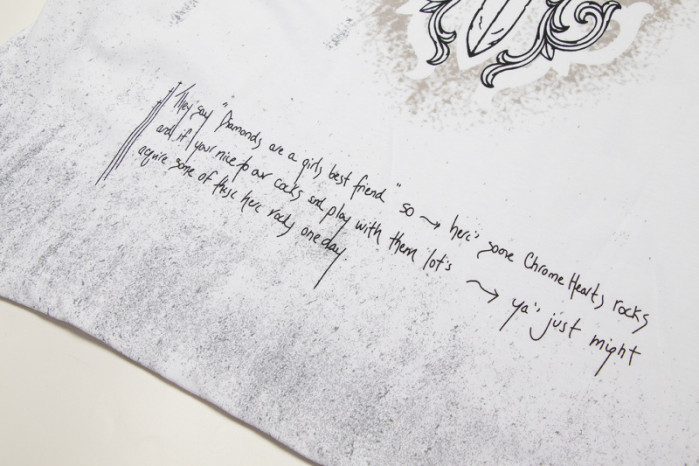 They say "Diamonds are a girls best friend" so → here's some Chrome Hearts rocks
and if your nice to our cocks and play with them lot's → ya's just might
aquire some of these here rocks one day.